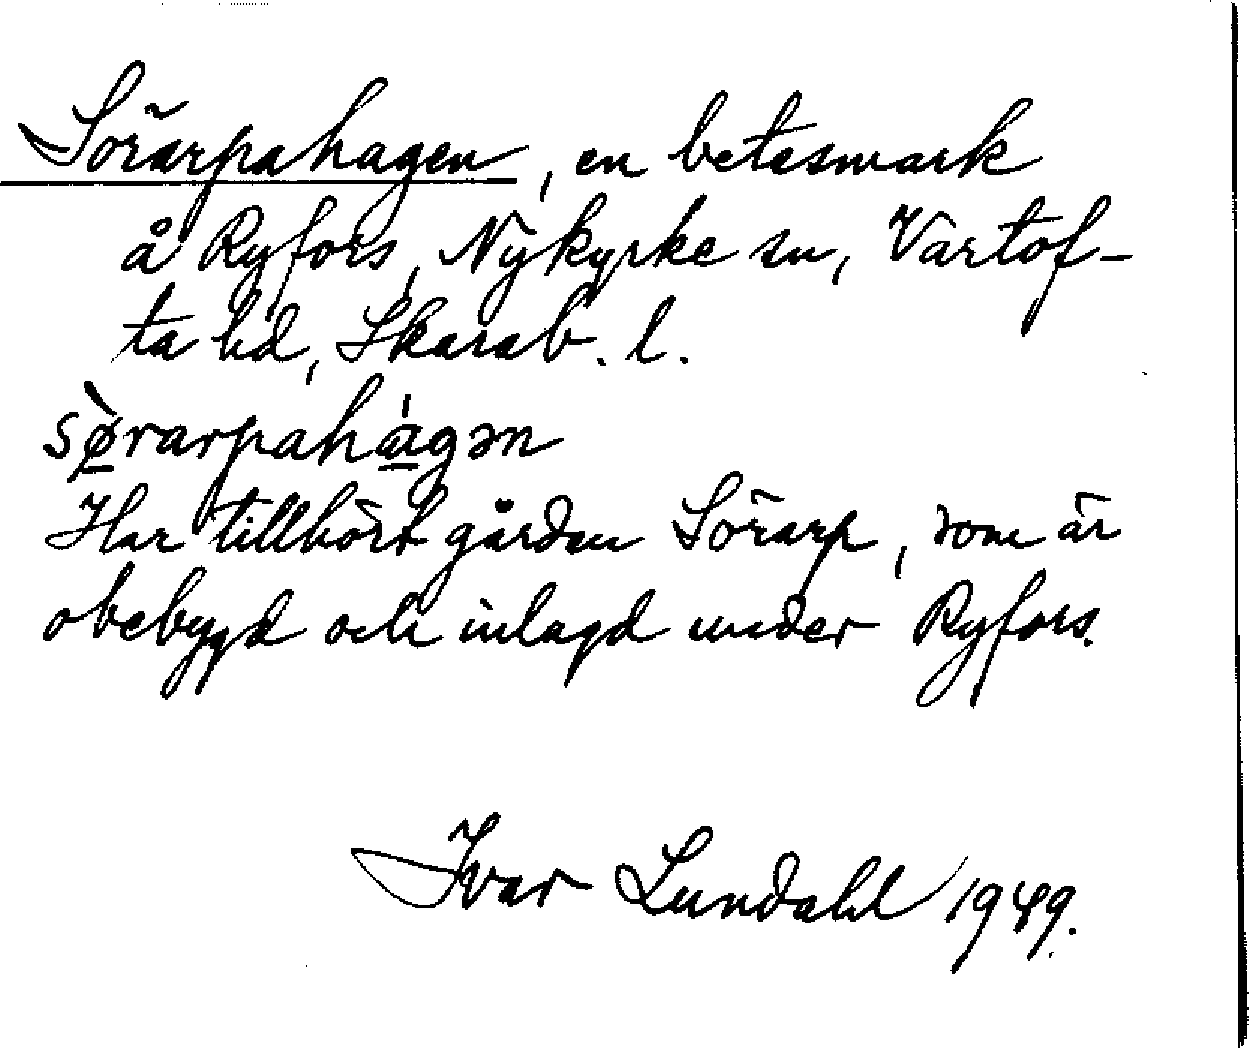 Sörarpahagen, en betesmark
å Ryfors, Nykyrke sn, Vartof-
ta hd, Skarab. l.
sø̀rarpahágən
Har tillhört gården Sörarp, som är
obebygd och inlagd under Ryfors.
Ivar Lundahl 1949.